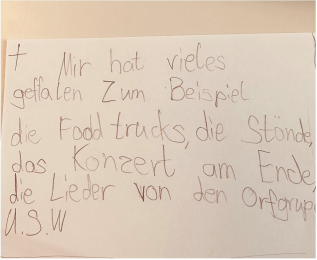 + Mir hat vieles
geffalen Zum Beispiel
die Fodd trucks, die Stönde,
das Konzert am Ende,
die Lieder von den Orfgrup
U.S.W